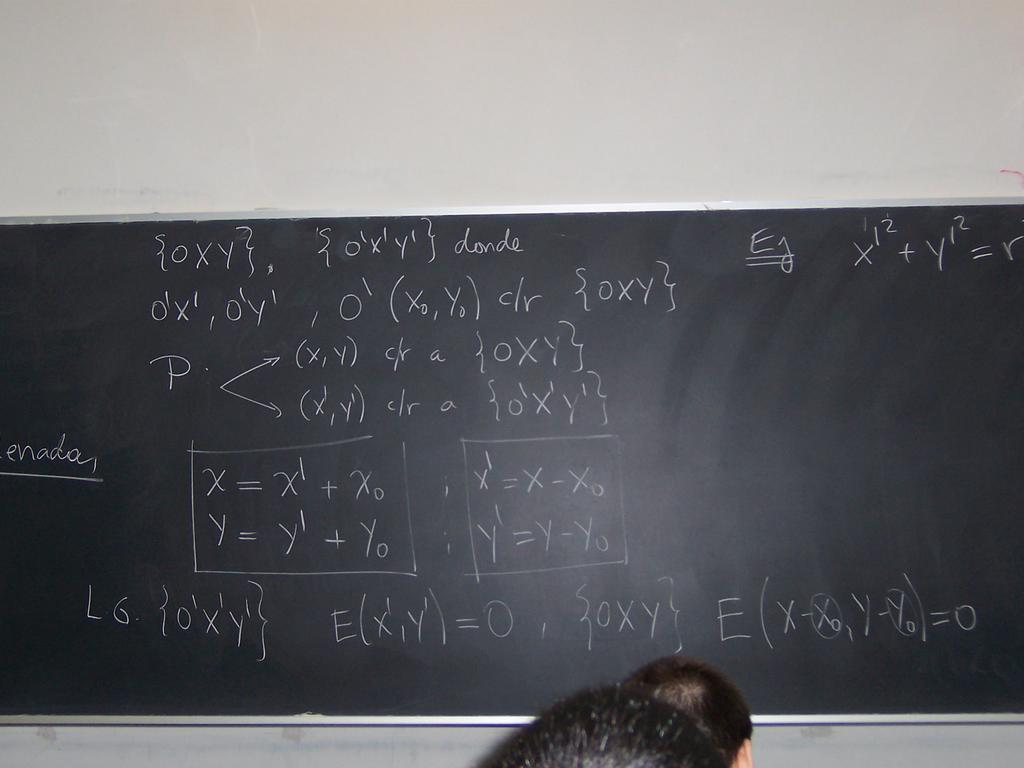 {OXY}, {O'X'Y'} donde
O'X', O'Y', O' (x₀, y₀) c/r {OXY}
P. (x, y) c/r a {OXY}
(x', y') c/r a {O'X'Y'}
enada,
x = x' + x₀ ; x' = x - x₀
y = y' + y₀ ; y' = y - y₀
LG. {O'X'Y'} E(x', y') = 0, {OXY} E(x-x₀, y-y₀) = 0
Ej x'² + y'² = r